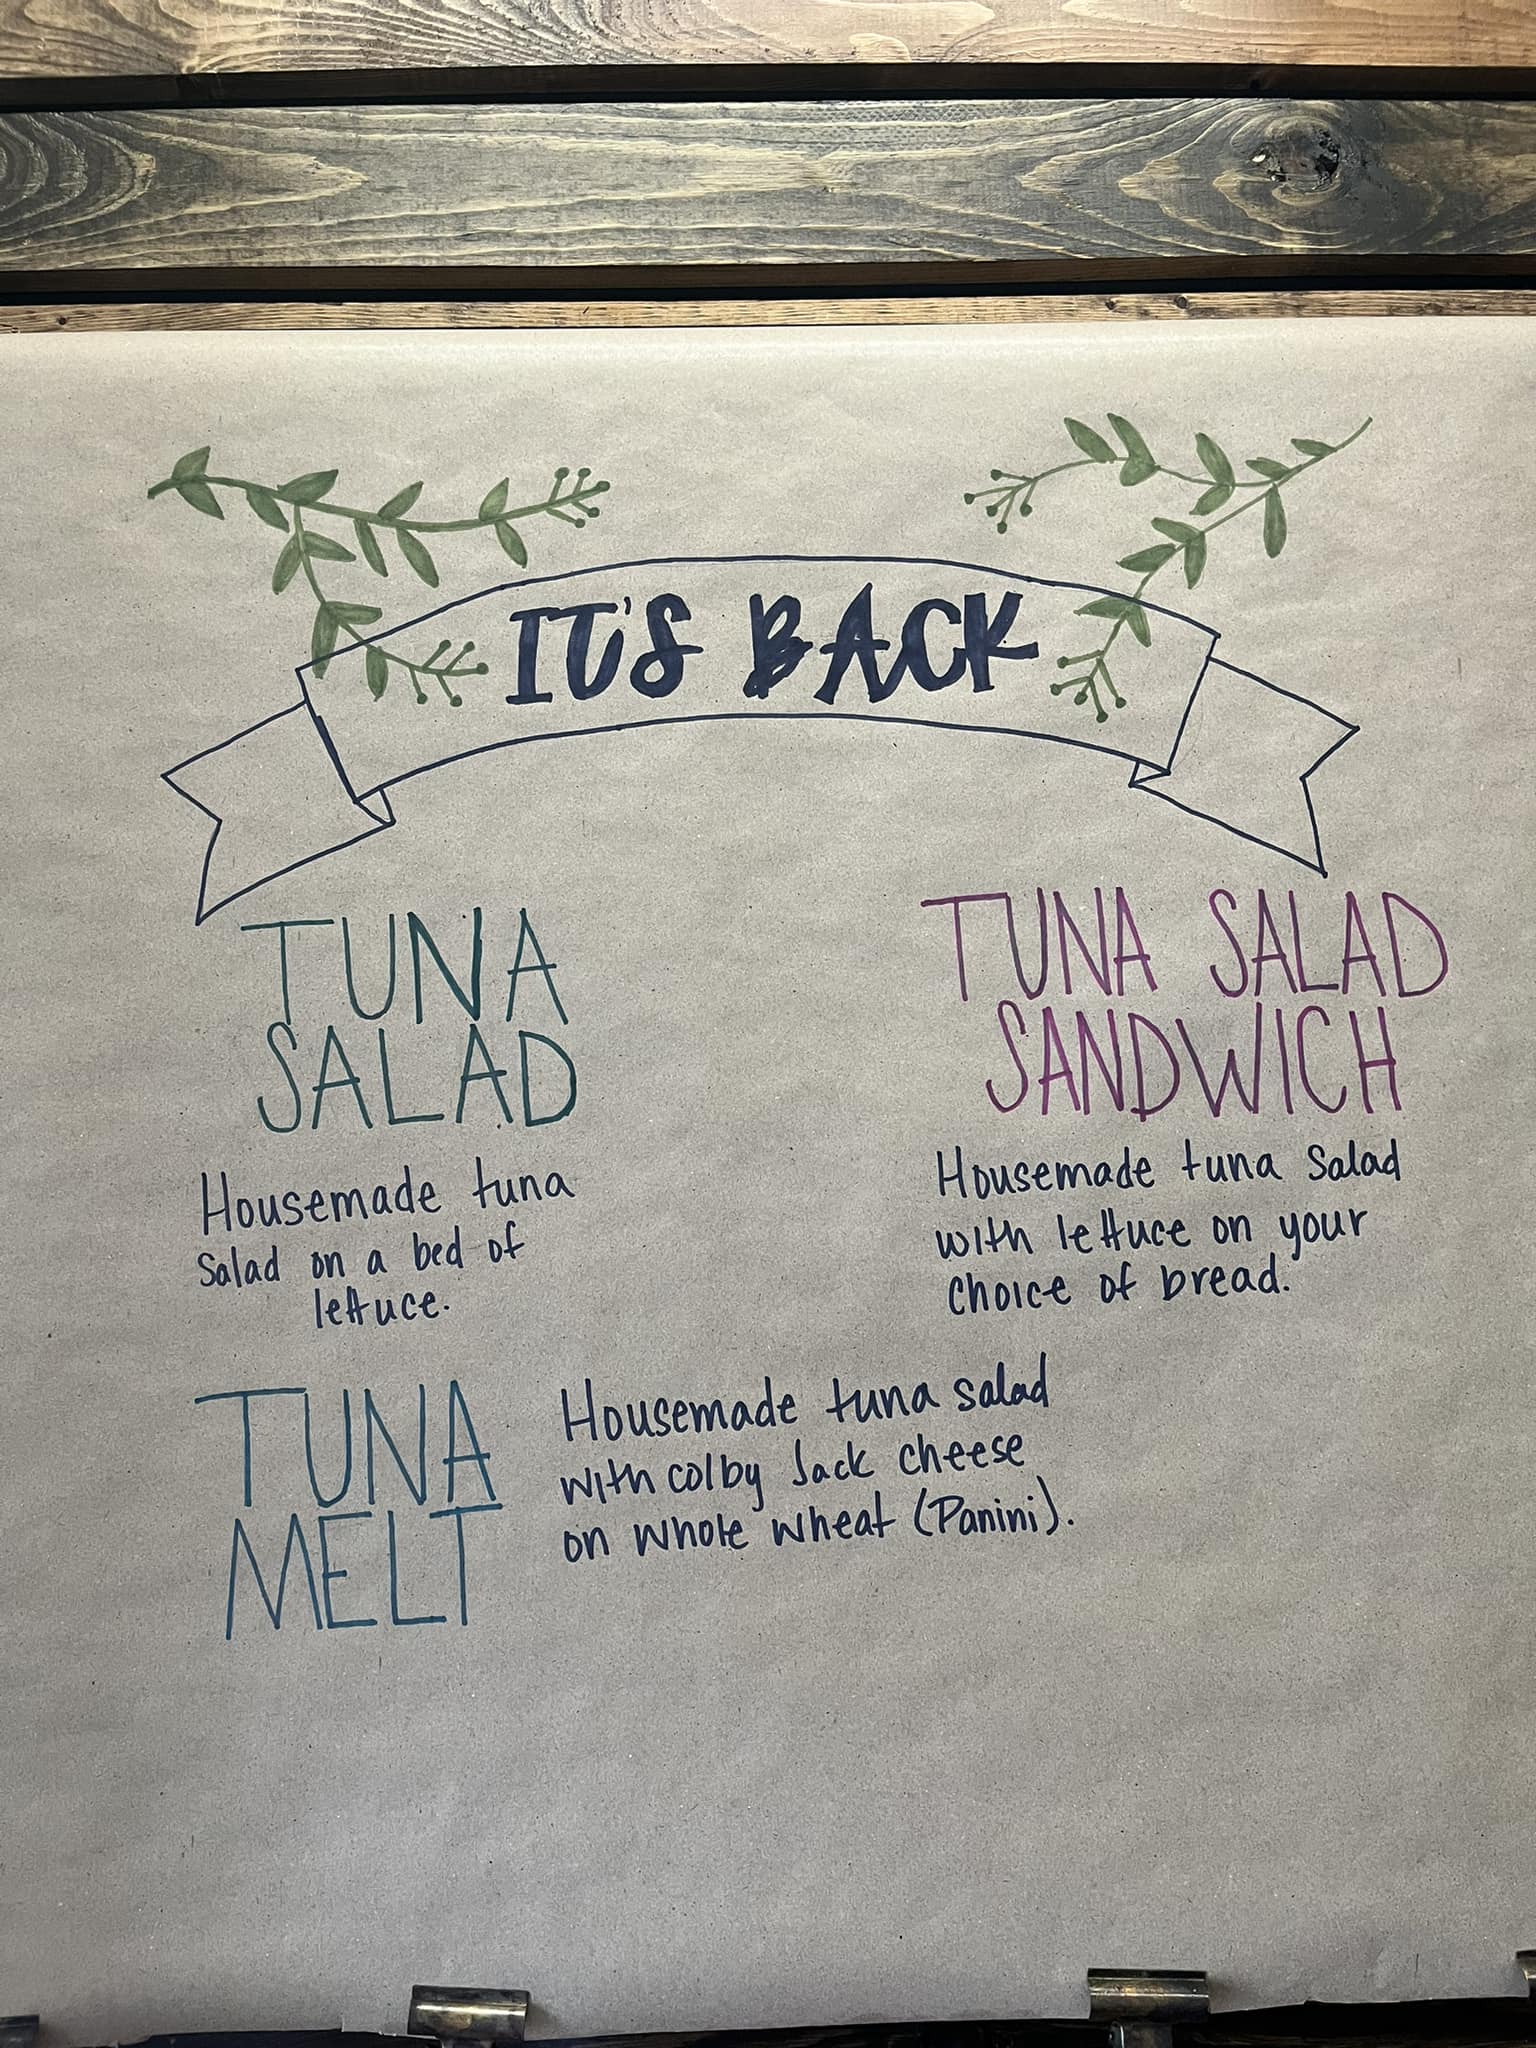 IT'S BACK
TUNA
SALAD
Housemade tuna
salad on a bed of
lettuce.
TUNA SALAD
SANDWICH
Housemade tuna salad
with lettuce on your
choice of bread.
TUNA
MELT
Housemade tuna salad
with colby Jack cheese
on whole wheat (Panini).